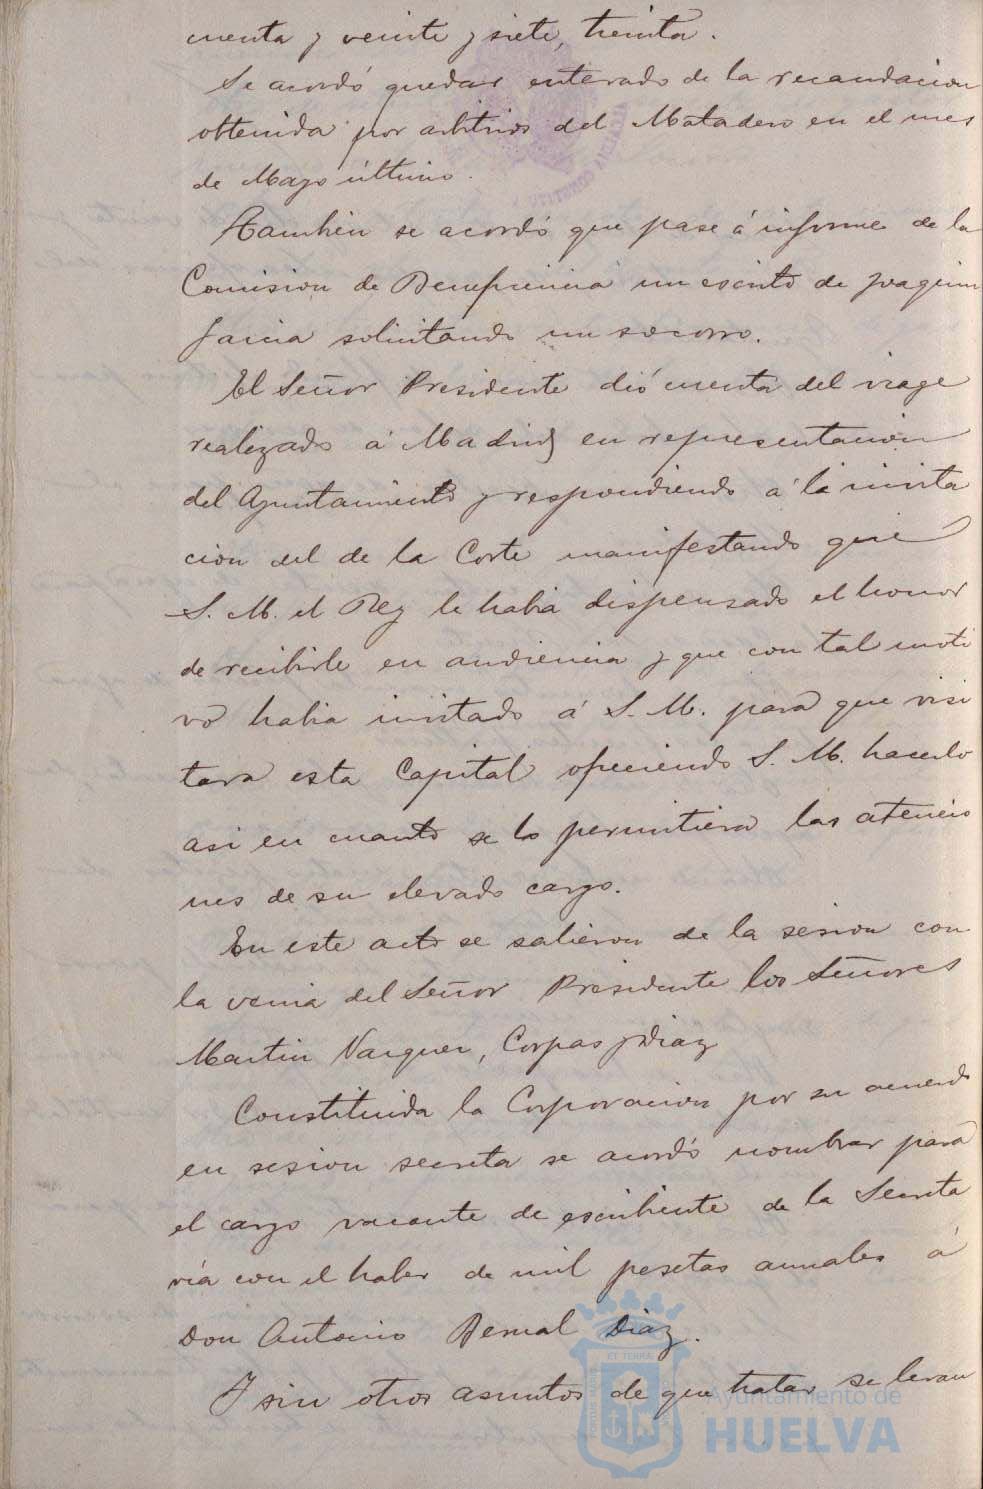 cuenta y veinte y siete, treinta.
Se acordó quedar enterado de la recaudacion
obtenida por arbitrios del Matadero en el mes
de Mayo último.
Tambien se acordó que pase á informe de la
Comision de Beneficencia un escrito de Joaquin
Garcia solicitando un socorro.
El Señor Presidente dió cuenta del viage
realizado á Madrid en representacion
del Ayuntamiento y respondiendo á la invita
cion del de la Corte manifestando que
S. M. el Rey le habia dispensado el honor
de recibirle en audiencia y que con tal moti
vo habia invitado á S. M. para que visi
tara esta Capital ofreciendo S. M. hacerlo
asi en cuanto se lo permitiera las atencio
nes de su elevado cargo.
En este acto se salieron de la sesion con
la venia del Señor Presidente los Señores
Martin Vazquez, Corpas y Diaz
Constituida la Corporacion por su acuerdo
en sesion secreta se acordó nombrar para
el cargo vacante de escribiente de la Secreta
ría con el haber de mil pesetas anuales á
Don Antonio Bernal Diaz.
Y sin otros asuntos de que tratar se levan
ET TERRAE
PORTUS MARIS
Ayuntamiento de
HUELVA